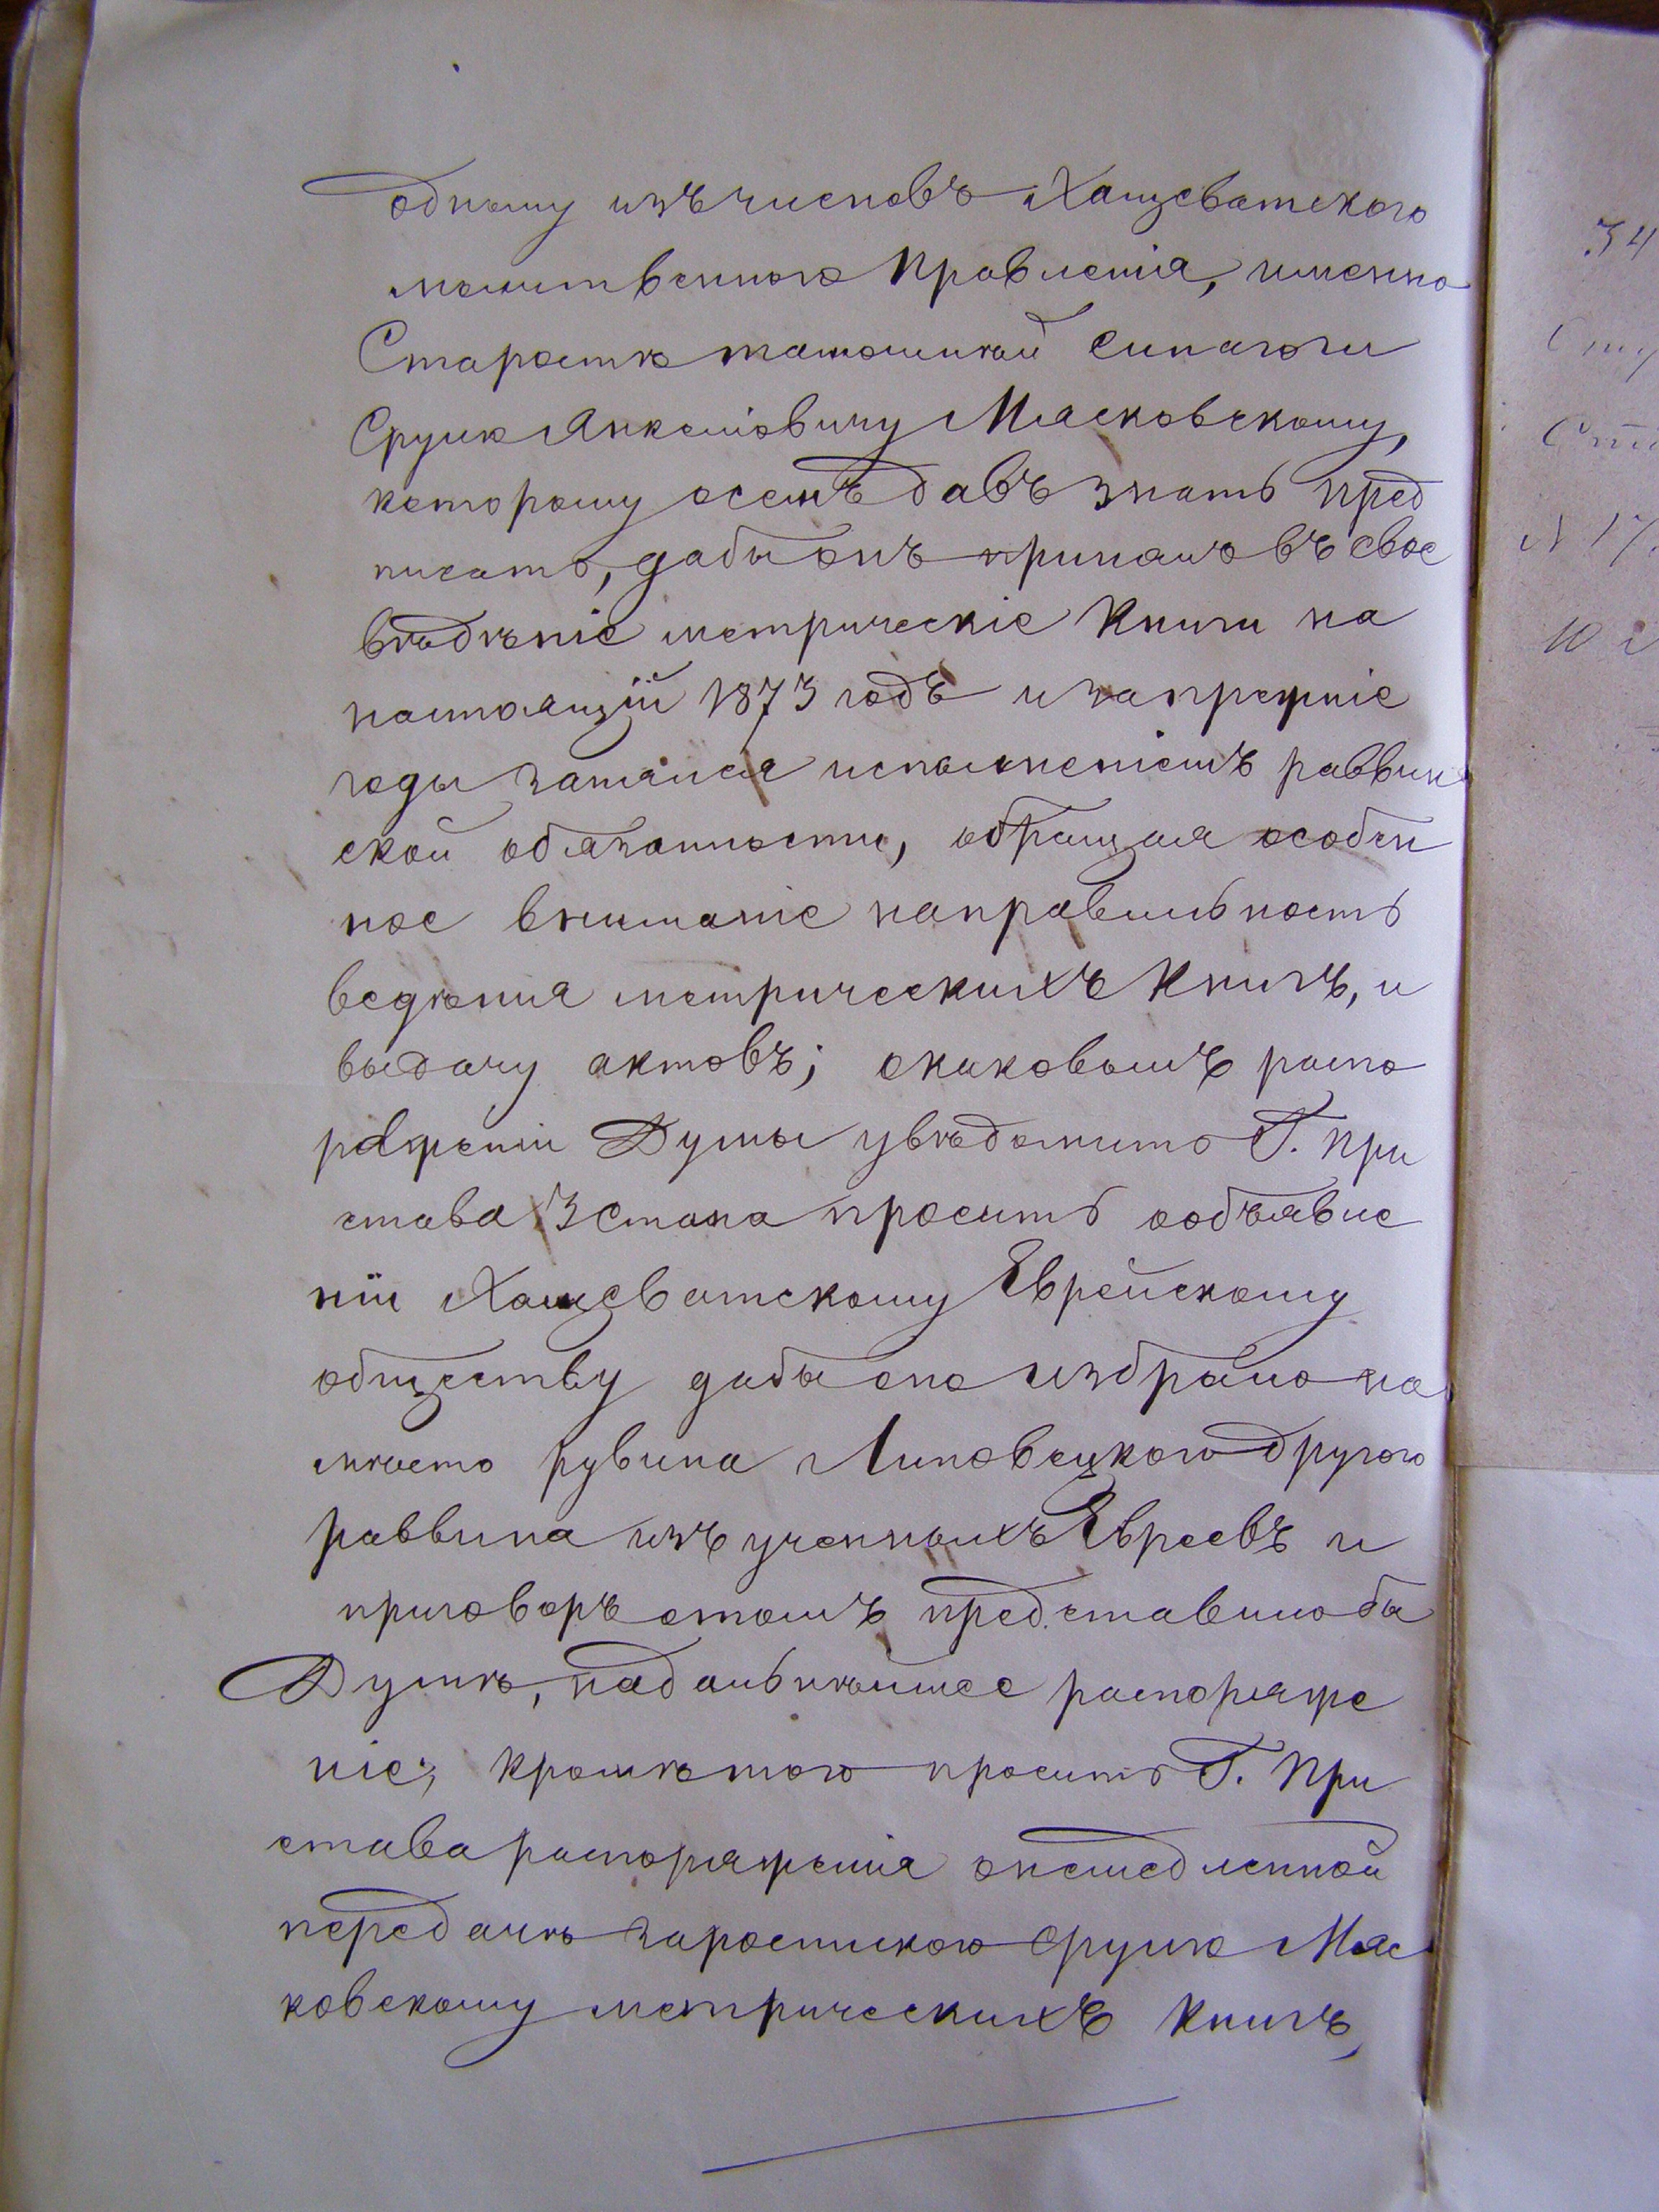 одному изъ членовъ Хащеватского
молитвенного Правленія, именно
Старостѣ тамошней Синагоги
Срулю Янкеліовичу Мясковскому,
которому осемъ давъ знать пред
писать, дабы онъ принялъ въ свое
вѣдѣніе метрическіе Книги на
настоящій 1873 годъ и запрежніе
годы занялся исполненіемъ раввин
ской обязанности, обращая особен
ное вниманіе направильность
ведѣния метрическихъ Книгъ, и
выдачу актовъ; окаковомъ распо
ряженіи Думы увѣдомить Г. При
става 3 Стана просить ообъявле
ніи Хащеватскому Еврейскому
обществу дабы оно избрало на
мѣсто рувина Липовецкого другого
раввина изъ ученныхъ Евреевъ и
приговоръ отомъ представило бы
Думѣ, надальнѣйшее распоряже
ніе; Кромѣ того просить Г. При
става распоряженія онемедленной
передачѣ заростискою Срулю Мяс
ковскому метрическихъ Книгъ,
34
С
Ст
N 17
10